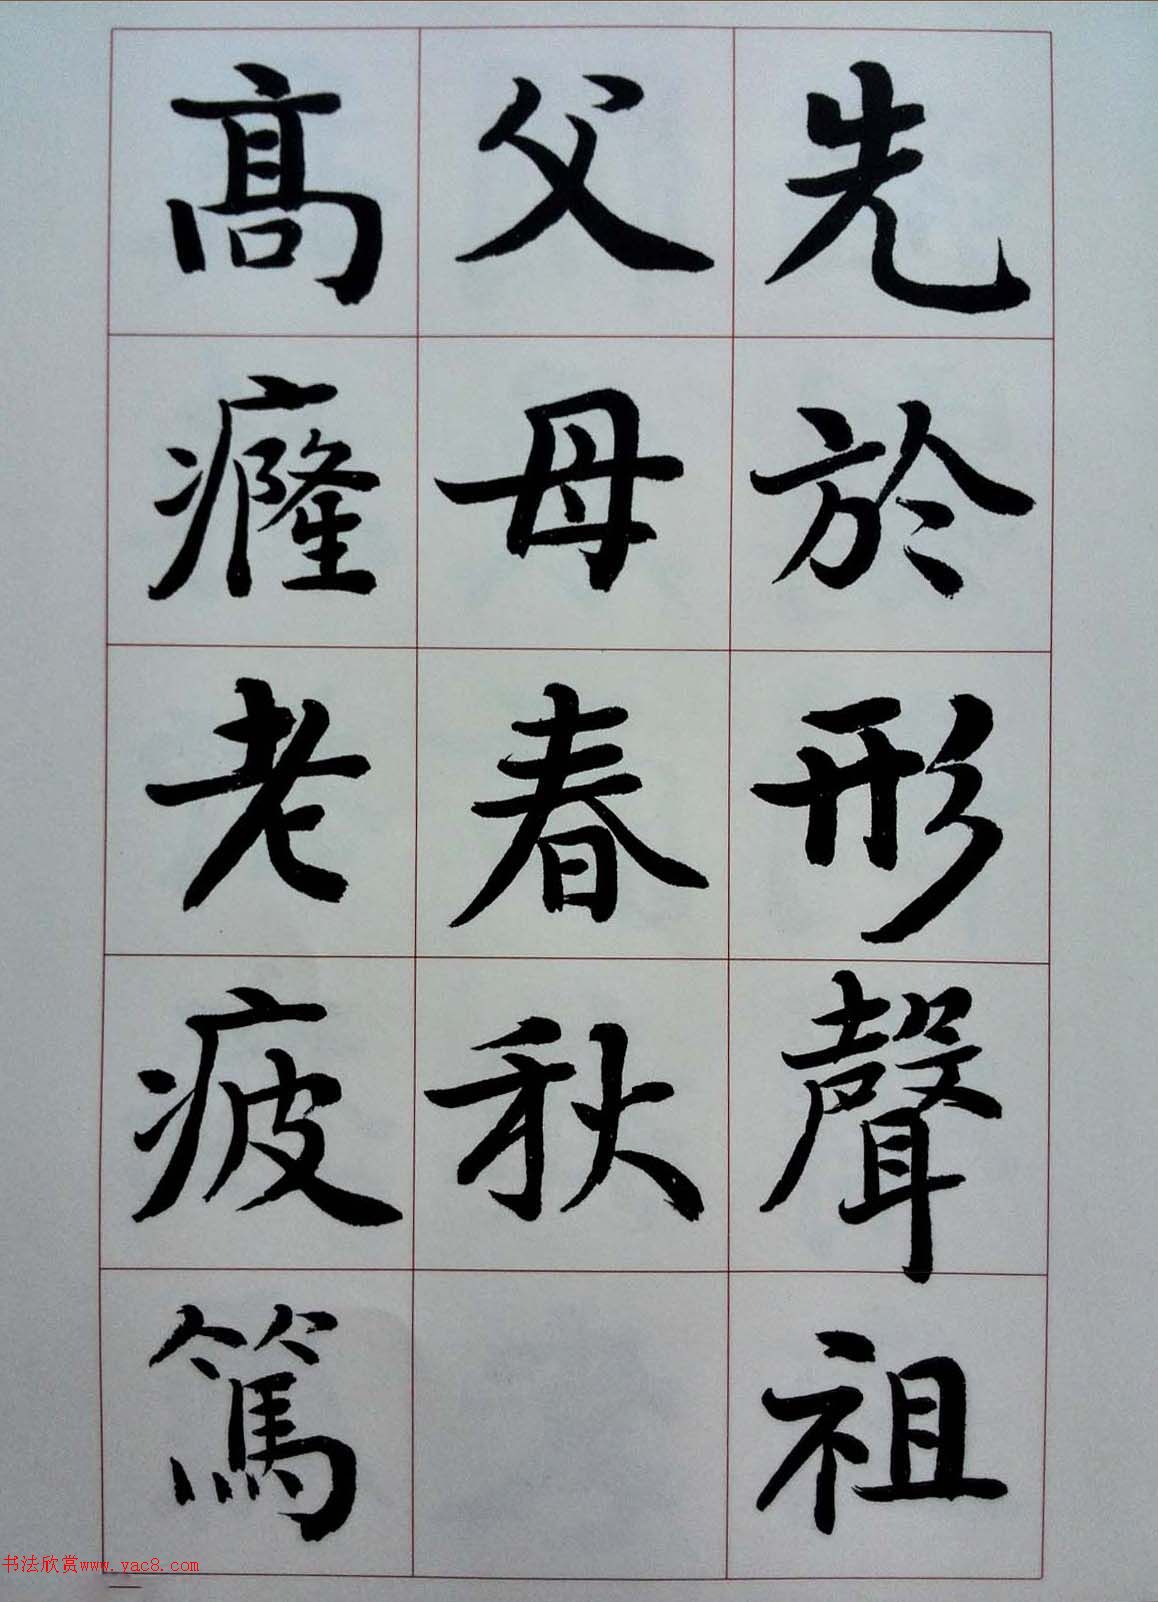 先於形聲祖
父母春秋
高癃老疲篤
书法欣赏www.yac8.com